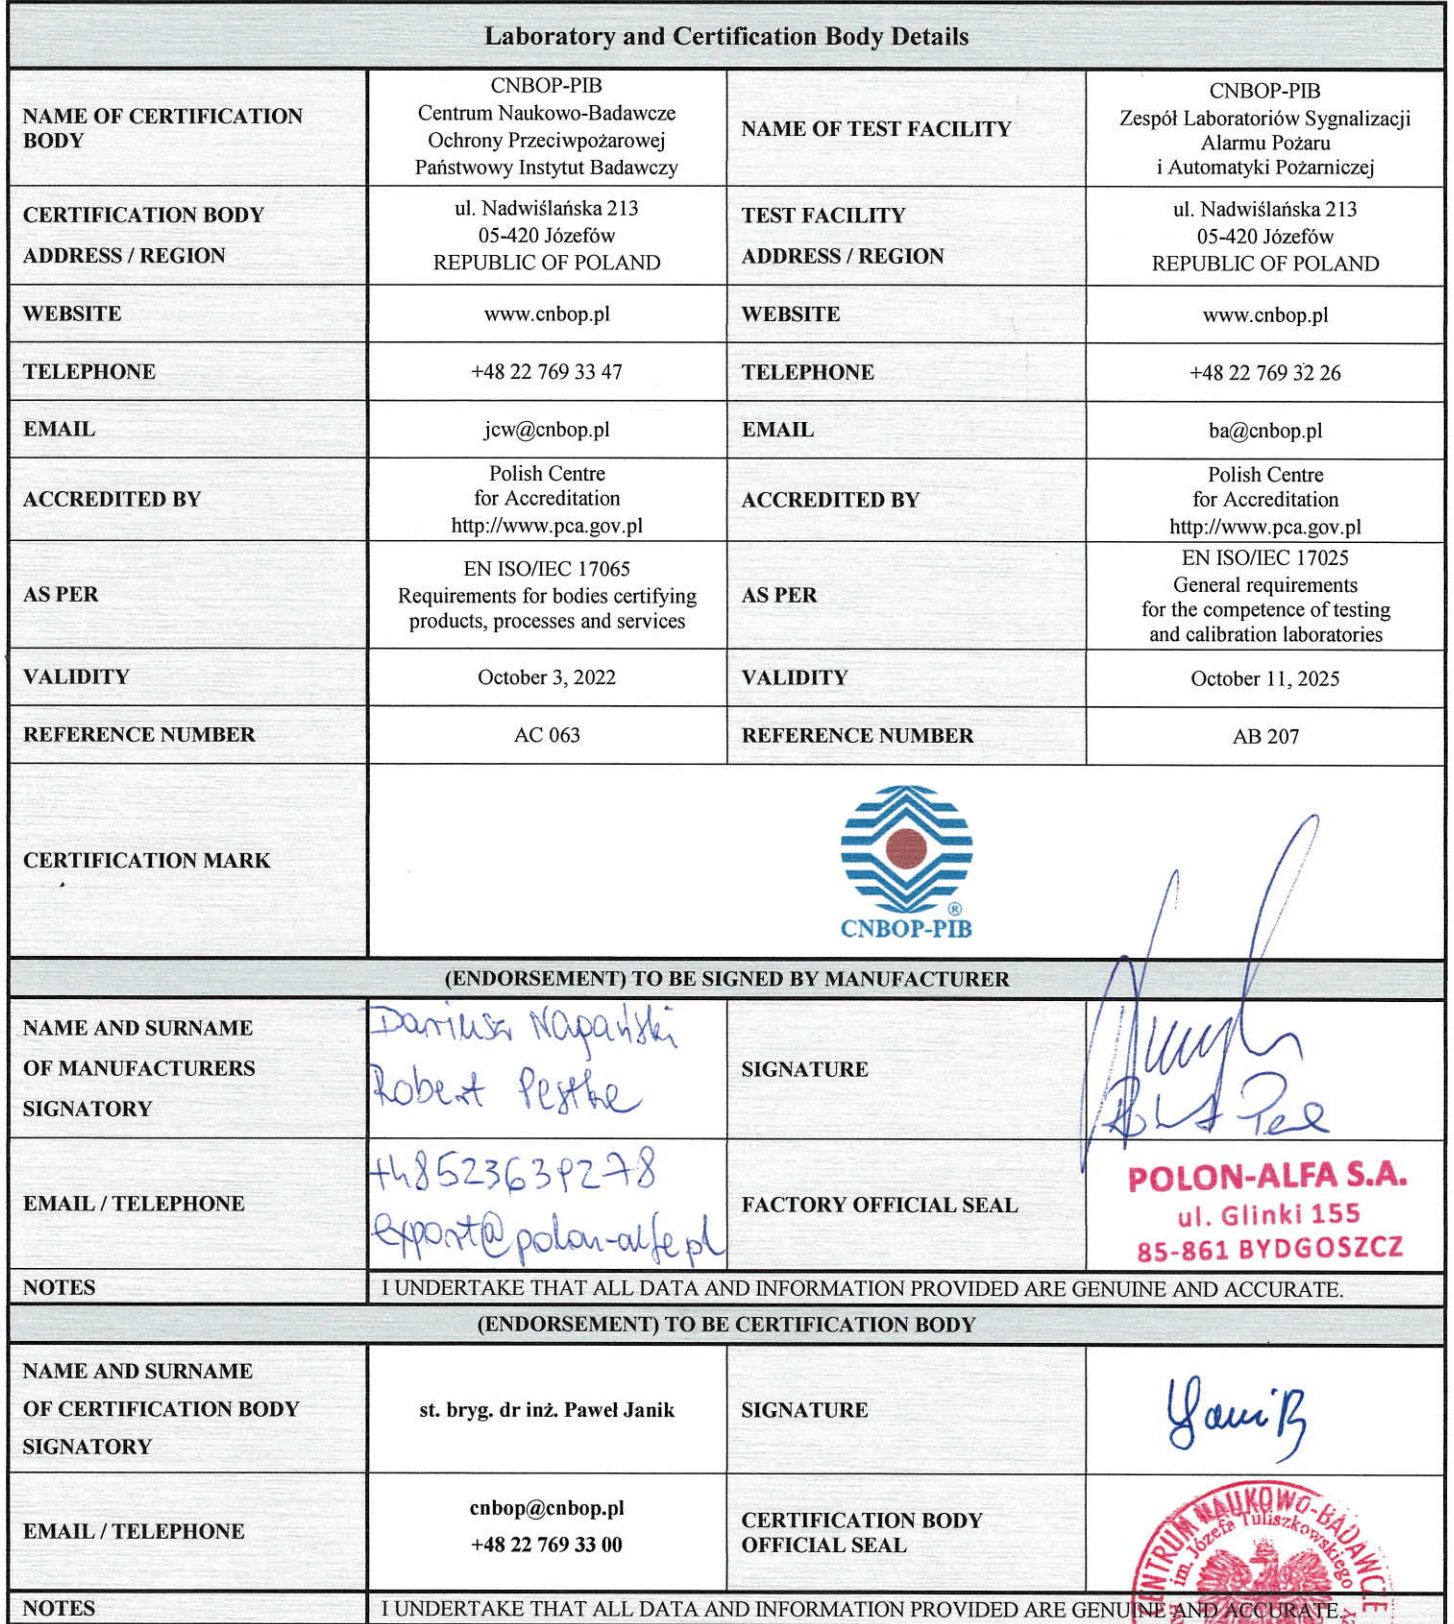 Laboratory and Certification Body Details
NAME OF CERTIFICATION
BODY
CNBOP-PIB
Centrum Naukowo-Badawcze
Ochrony Przeciwpożarowej
Państwowy Instytut Badawczy
NAME OF TEST FACILITY
CNBOP-PIB
Zespół Laboratoriów Sygnalizacji
Alarmu Pożaru
i Automatyki Pożarniczej
CERTIFICATION BODY
ADDRESS / REGION
ul. Nadwiślańska 213
05-420 Józefów
REPUBLIC OF POLAND
TEST FACILITY
ADDRESS / REGION
ul. Nadwiślańska 213
05-420 Józefów
REPUBLIC OF POLAND
WEBSITE
www.cnbop.pl
WEBSITE
www.cnbop.pl
TELEPHONE
+48 22 769 33 47
TELEPHONE
+48 22 769 32 26
EMAIL
jcw@cnbop.pl
EMAIL
ba@cnbop.pl
ACCREDITED BY
Polish Centre
for Accreditation
http://www.pca.gov.pl
ACCREDITED BY
Polish Centre
for Accreditation
http://www.pca.gov.pl
AS PER
EN ISO/IEC 17065
Requirements for bodies certifying
products, processes and services
AS PER
EN ISO/IEC 17025
General requirements
for the competence of testing
and calibration laboratories
VALIDITY
October 3, 2022
VALIDITY
October 11, 2025
REFERENCE NUMBER
AC 063
REFERENCE NUMBER
AB 207
CERTIFICATION MARK
®
CNBOP-PIB
(ENDORSEMENT) TO BE SIGNED BY MANUFACTURER
NAME AND SURNAME
OF MANUFACTURERS
SIGNATORY
Dariusz Napański
Robert Pestke
SIGNATURE
EMAIL / TELEPHONE
+48523639278
export@polon-alfa.pl
FACTORY OFFICIAL SEAL
POLON-ALFA S.A.
ul. Glinki 155
85-861 BYDGOSZCZ
NOTES
I UNDERTAKE THAT ALL DATA AND INFORMATION PROVIDED ARE GENUINE AND ACCURATE.
(ENDORSEMENT) TO BE CERTIFICATION BODY
NAME AND SURNAME
OF CERTIFICATION BODY
SIGNATORY
st. bryg. dr inż. Paweł Janik
SIGNATURE
Janik
EMAIL / TELEPHONE
cnbop@cnbop.pl
+48 22 769 33 00
CERTIFICATION BODY
OFFICIAL SEAL
CENTRUM NAUKOWO-BADAWCZE
im. Józefa Tuliszkowskiego
NOTES
I UNDERTAKE THAT ALL DATA AND INFORMATION PROVIDED ARE GENUINE AND ACCURATE.